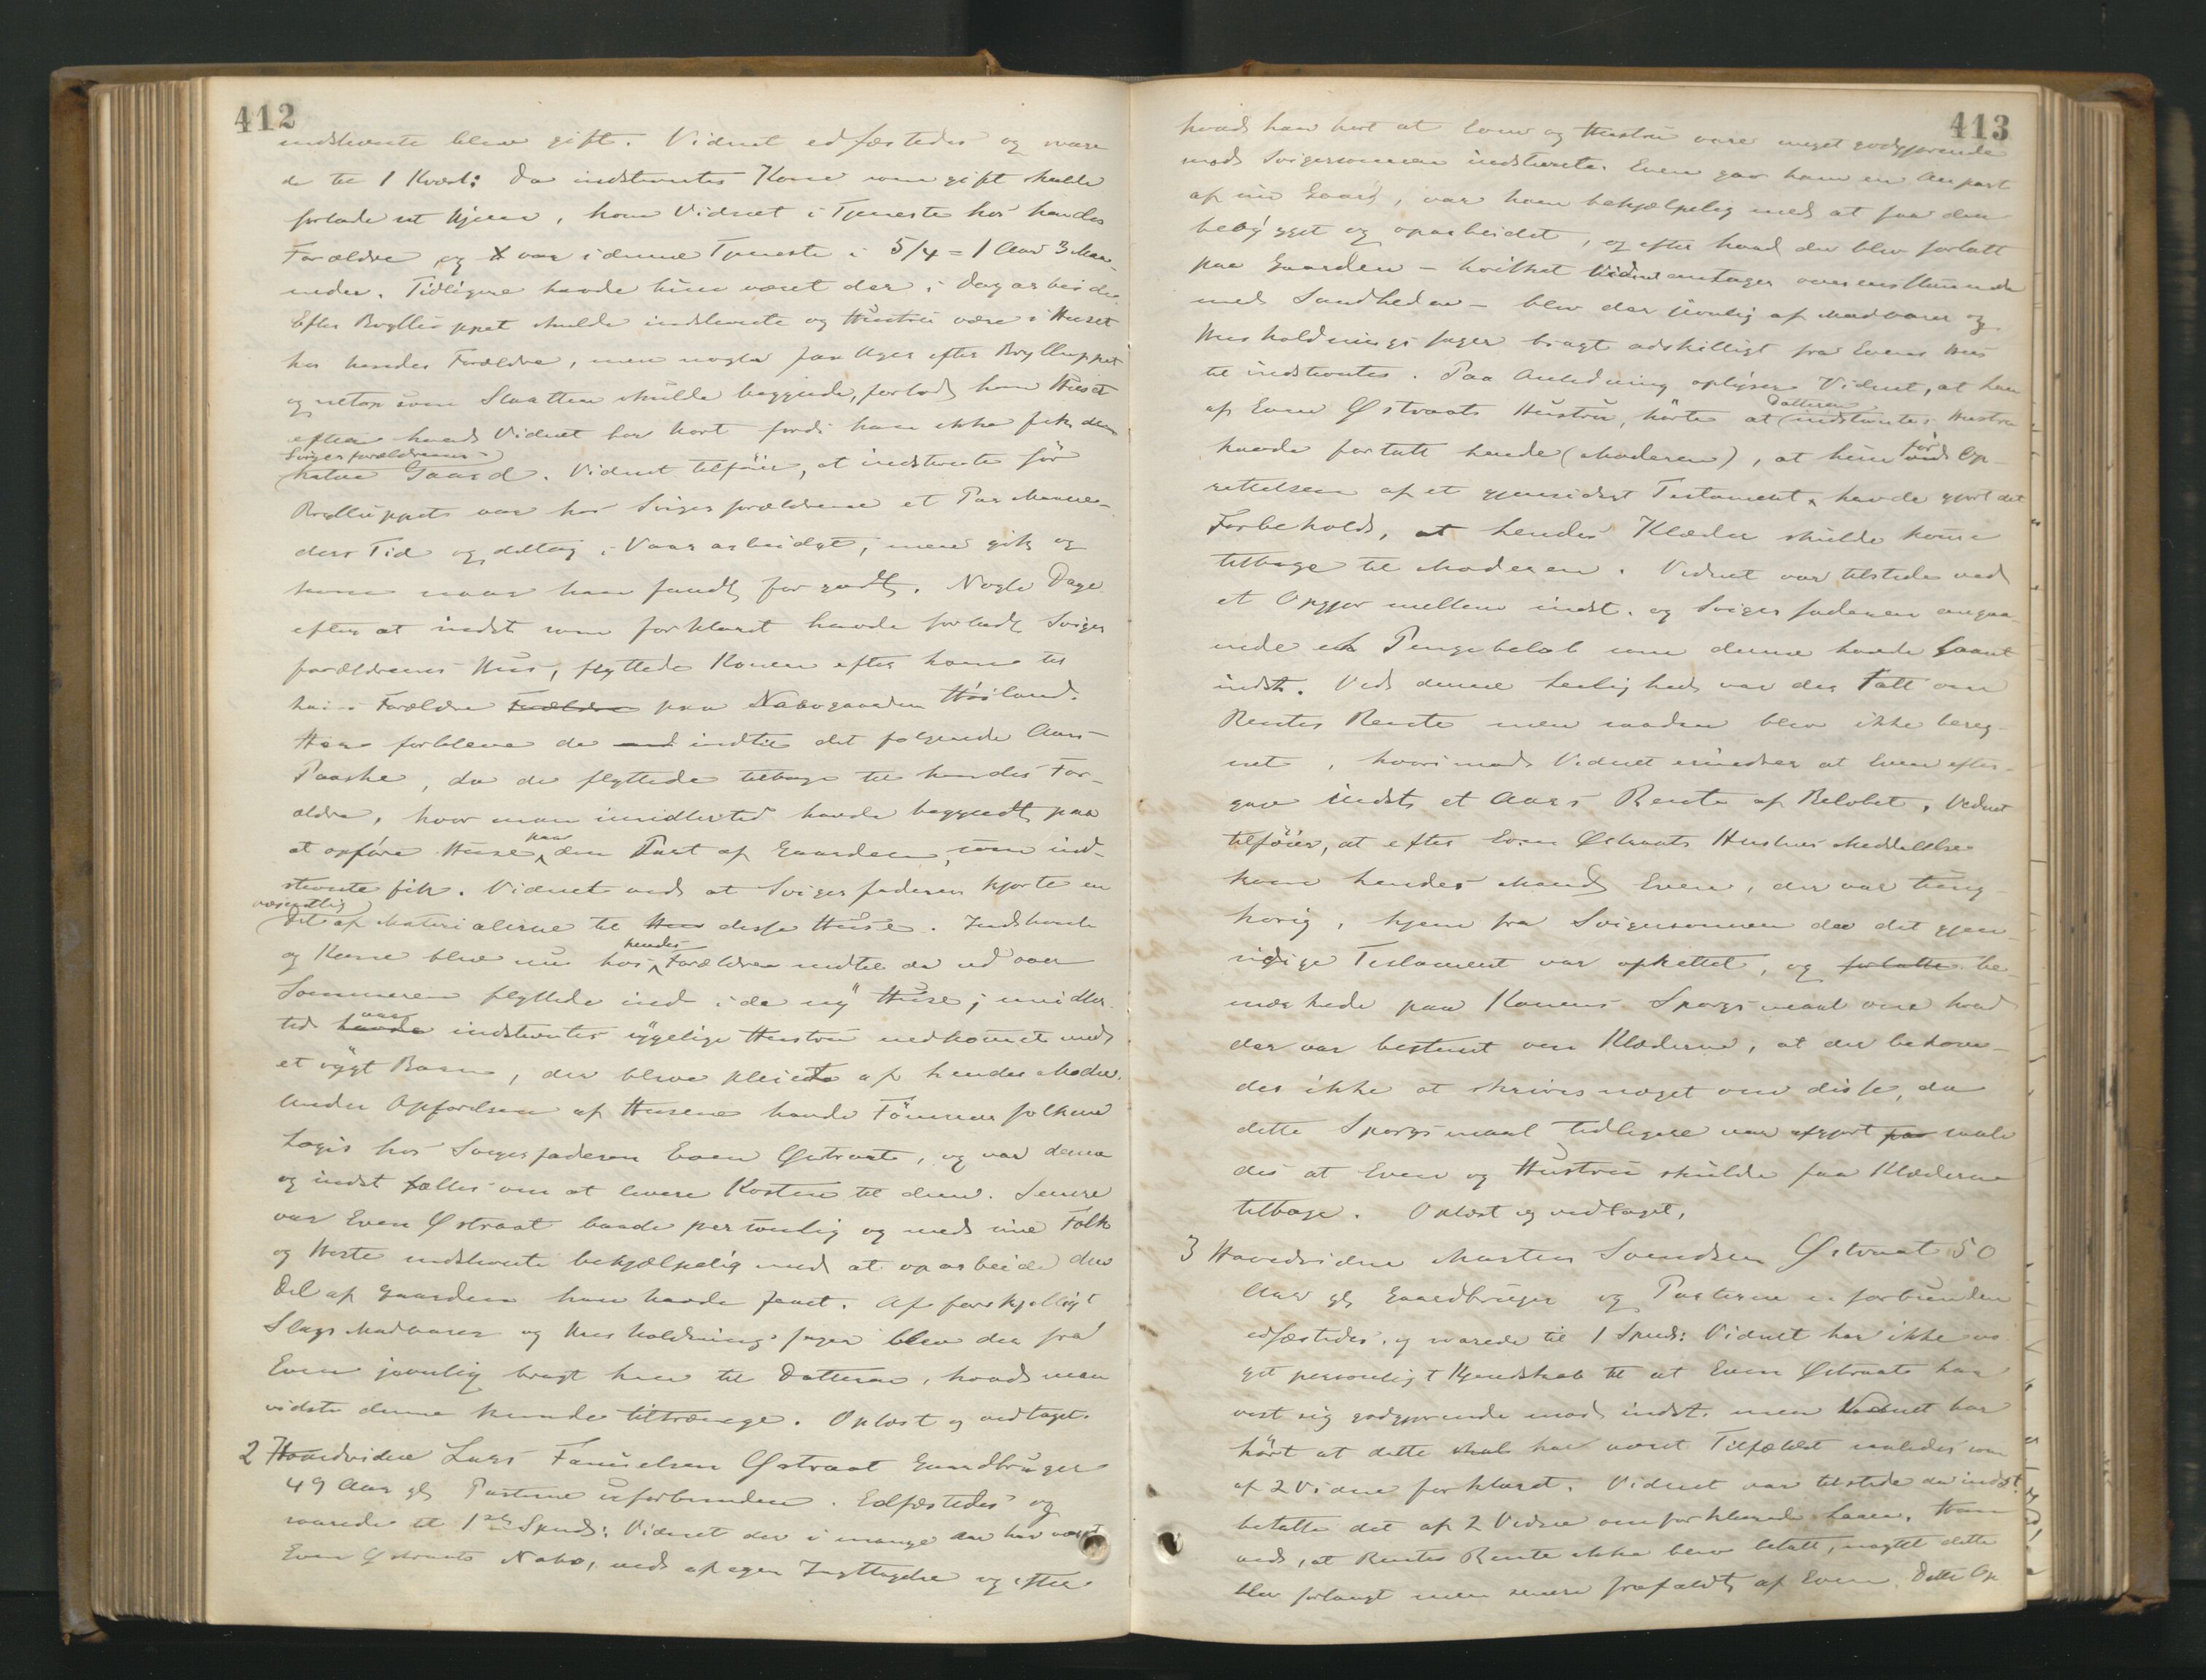 412
indstevnte blev gift. Vidnet edfæstedes og svare
de til 1 Kvæst: Da indstevntes Kone som gift skulde
forlade sit Hjem, kom Vidnet i Tjeneste hos hendes
Forældre og var i denne Tjeneste i 5/4 = 1 Aar 3 Maa-
neder. Tidligere havde hun været der i Dagarbeide.
Efter Brylluppet skulde indstevnte og Hustru være i Huset
hos hendes Forældre, men nogle faa Uger efter Brylluppet
og netop som Slaatten skulde begynde, forlod han Huset
efter hvad Vidnet har hørt fordi han ikke fik den
Svigerforældrenes
halve Gaard. Vidnet tilføier, at indstevnte før
Brylluppet var hos Svigerforældrene et Par Maane-
ders Tid og deltog i Vaararbeidet, men gik og
kom naar han fandt for godt. Nogle Dage
efter at indst som forklaret havde forladt Sviger
forældrenes Hus, flyttede Konen efter ham til
hans Forældre Forældre paa Nabogaarden Høiland.
Her forbleve de indtil det følgende Aars
Paaske, da de flyttede tilbage til hendes For-
ældre, hvor man imidlertid havde begyndt paa
at opføre Huse paa den Part af Gaarden, som ind-
stevnte fik. Vidnet ved at Svigerfaderen kjørte en
væsentlig
Del af Materialerne til Hus disse Huse. Indstevnte
og Kone blev nu hos hendes Forældre indtil de ud over
Sommeren flyttede ind i de ny Huse; imidler-
tid havde var indstevntes sygelige Hustru nedkommet med
et sygt Barn, der blev pleiet af hendes Moder.
Under Opførelsen af Husene havde Tømmerfolkene
Logis hos Svigerfaderen Even Østraat, og var denne
og indst fælles om at levere Kosten til dem. Senere
var Even Østraat baade personlig og med sine Folk
og Heste indstevnte behjælpelig med at oparbeide den
Del af Gaarden han havde faaet. Af forskjelligt
Slags Madvarer og Husholdningssager blev der fra
Even jevnlig bragt hen til Datteren, hvad man
vidste denne kunde tiltrænge. Oplæst og vedtaget.
2 Hovedvidne Lars Østraat Gaardbruger
49 Aar gl Parterne uforbunden. Edfæstedes og
svarede til 1ste Spms: Vidnet der i mange Aar har været
Even Østraats Nabo, ved af egen Iagttagelse og efter
413
hvad han hørt at Even og Hustru vare meget godgjørende
mod Svigersønnen indstevnte. Even gav ham en Anpart
af sin Gaard, var ham behjælpelig med at faa den
bebygget og oparbeidet, og efter hvad der blev fortalt
paa Gaarden – hvilket Vidnet antager overensstemmende
med Sandheden – blev der jevnlig af Madvarer og
Husholdningssager bragt adskilligt fra Evens Hus
til indstevntes. Paa Anledning oplyser Vidnet, at han
af Even Østraats Hustru, hørte at Datteren (indstevntes Hustru
havde fortalt hende (Moderen), at hun før ved Op-
rettelsen af et gjensidigt Testament, havde gjort det
Forbehold, at hendes Klæder skulde komme
tilbage til Moderen. Vidnet var tilstede ved
et Opgjør mellem indst. og Svigerfaderen angaa-
ende et Pengebeløb som denne havde laant
indst. Ved denne Leilighed var der talt om
Rentes Rente men saadan blev ikke bereg-
net, hvorimod Vidnet erindrer at Even efter-
gav indst et Aars Rente af Beløbet. Vidnet
tilføier, at efter Even Østraats Hustrus Meddelelse
kom hendes Mand Even, der var tung-
hørig, hjem fra Svigersønnen da det gjen-
sidige Testament var oprettet, og fortalte be-
mærkede paa Konens Spørgsmaal om hvad
der var bestemt om Klæderne, at der behøve-
des ikke at skrives noget om disse, da
dette Spørgsmaal tidligere var afgjort paa saale
des at Even og Hustru skulde faa Klæderne
tilbage. Oplæst og vedtaget.
3 Hovedvidne Morten Svendsen Østraat 50
Aar gl Gaardbruger og Parterne uforbunden
edfæstedes og svarede til 1 Spms: Vidnet har ikke no
get personligt Kjendskab til at Even Østraat har
vist sig godgjørende mod indst. men Vidnet har
hørt at dette skal have været Tilfældet saaledes som
af 2 Vidne forklaret. Vidnet var tilstede da indst
betalte det af 2 Vidne omforklarede Laan. Han
ved, at Rentes Rente ikke blev betalt, uagtet dette
blev forlangt men senere frafaldt af Even. Dette Op